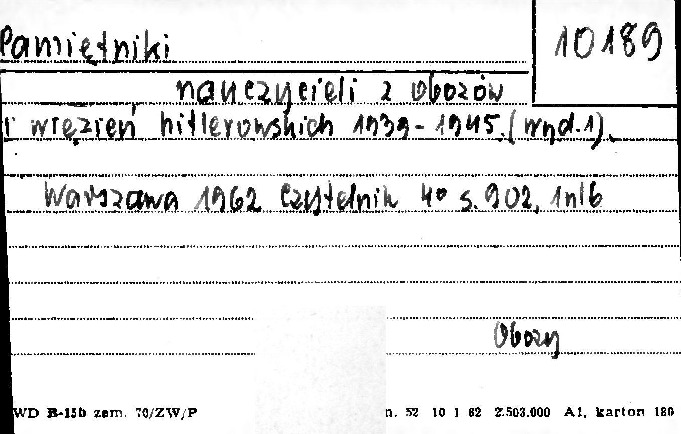 Pamiętniki
10189
nauczycieli z obozów
i więzień hitlerowskich 1939-1945. (wyd.1).
Warszawa 1962 Czytelnik 4° s. 902, 1nlb
Obozy
WD B-15b zem. 70/ZW/P
n. 52 10 1 62 2.503.000 A1, karton 180